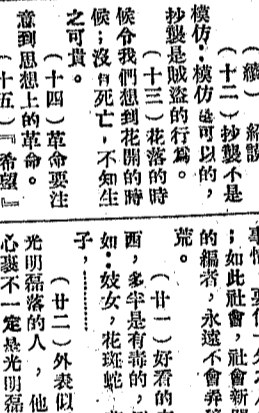 (續)
(十二)抄襲不是
模仿:模仿是可以的,
抄襲是賊盜的行為。
(十三)花落的時
候令我們想到花開的時
候;沒有死亡,不知生
之可貴。
(十四)革命要注
意到思想上的革命。
(十五)『希望』
事情,
;如此社會,社會新聞
的編者,永遠不會弄
荒。
(廿一)好看的
西,多半是有毒的,
如:妓女,花斑蛇,
子,………
(廿二)外表似
光明磊落的人,他
心裏不一定是光明磊